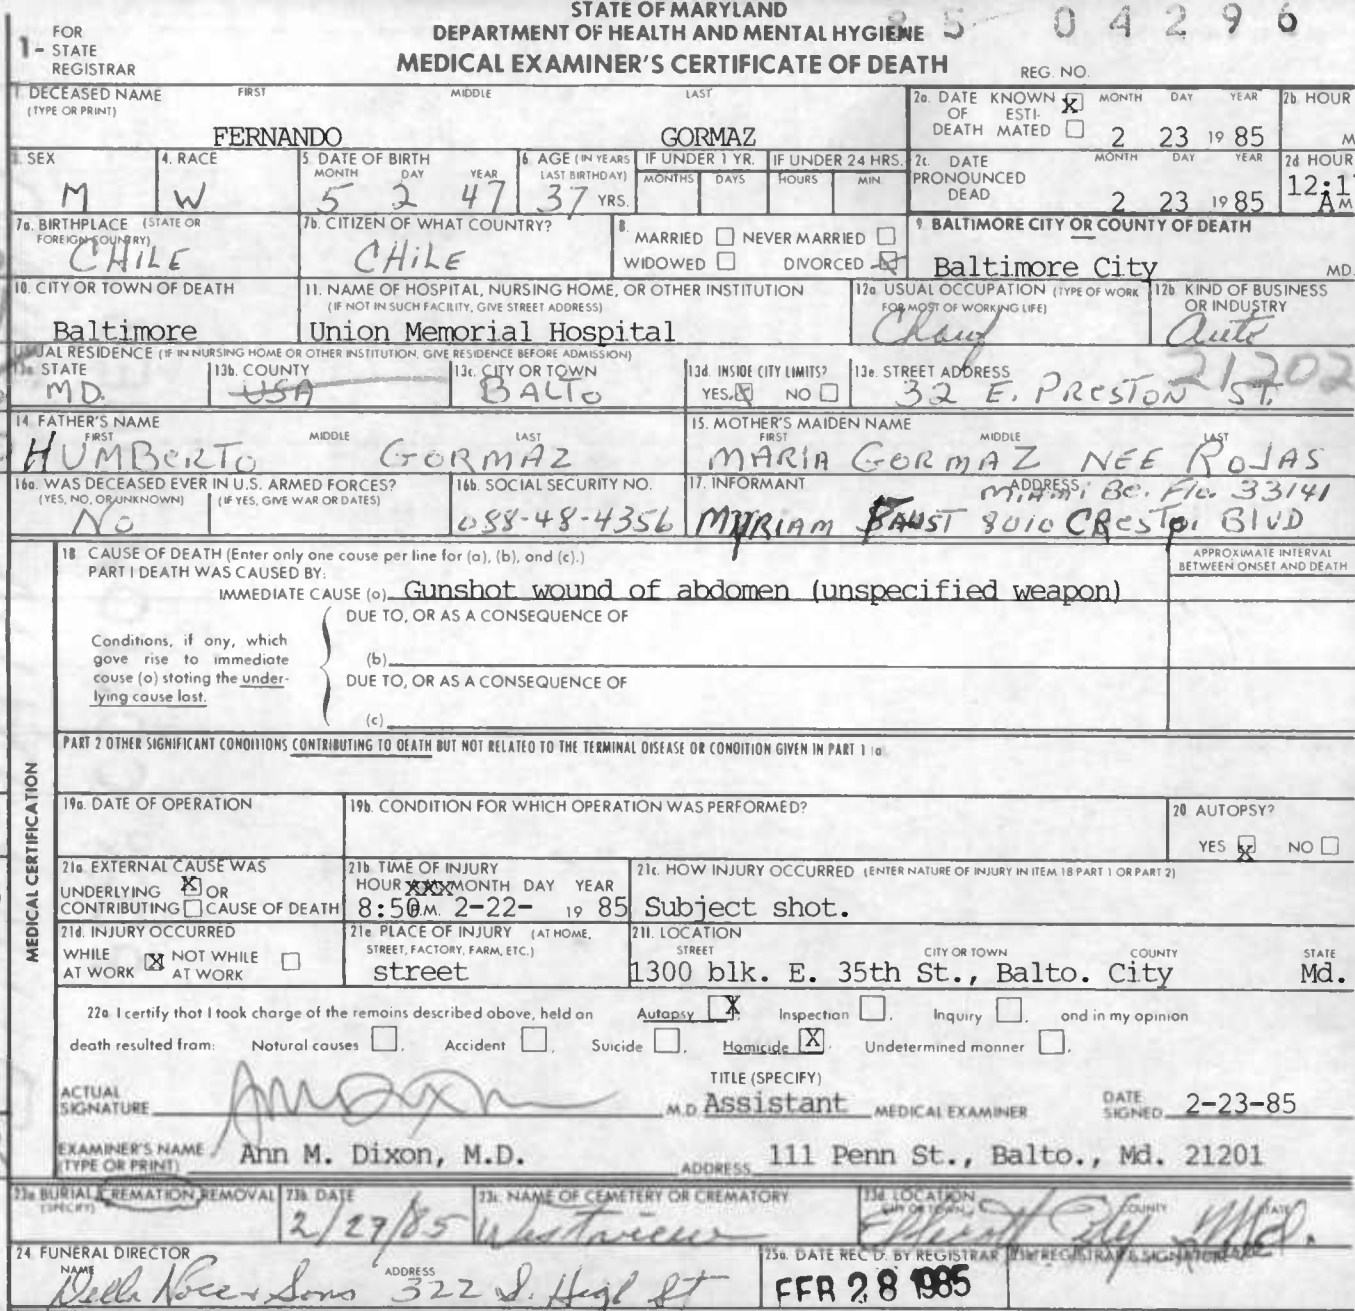 STATE OF MARYLAND
DEPARTMENT OF HEALTH AND MENTAL HYGIENE
MEDICAL EXAMINER'S CERTIFICATE OF DEATH
85 04296
REG. NO.
1- FOR STATE REGISTRAR
1. DECEASED NAME FIRST MIDDLE LAST
(TYPE OR PRINT)
FERNANDO GORMAZ
2a. DATE OF DEATH KNOWN X ESTIMATED MONTH DAY YEAR
2 23 1985
2b HOUR
M
3. SEX
M
4. RACE
W
5. DATE OF BIRTH
MONTH DAY YEAR
5 2 47
6. AGE (IN YEARS LAST BIRTHDAY)
37 YRS.
IF UNDER 1 YR.
MONTHS DAYS
IF UNDER 24 HRS.
HOURS MIN.
2c. DATE PRONOUNCED DEAD MONTH DAY YEAR
2 23 1985
2d HOUR
12:1
A M
7a. BIRTHPLACE (STATE OR FOREIGN COUNTRY)
CHILE
7b. CITIZEN OF WHAT COUNTRY?
CHILE
8. MARRIED NEVER MARRIED
WIDOWED DIVORCED X
9. BALTIMORE CITY OR COUNTY OF DEATH
Baltimore City MD.
10. CITY OR TOWN OF DEATH
Baltimore
11. NAME OF HOSPITAL, NURSING HOME, OR OTHER INSTITUTION
(IF NOT IN SUCH FACILITY, GIVE STREET ADDRESS)
Union Memorial Hospital
12a. USUAL OCCUPATION (TYPE OF WORK FOR MOST OF WORKING LIFE)
Chauf
12b. KIND OF BUSINESS OR INDUSTRY
Auto
USUAL RESIDENCE (IF IN NURSING HOME OR OTHER INSTITUTION, GIVE RESIDENCE BEFORE ADMISSION)
13a. STATE
MD.
13b. COUNTY
USA
13c. CITY OR TOWN
BALTO
13d. INSIDE CITY LIMITS?
YES X NO
13e. STREET ADDRESS
21202
32 E. PRESTON ST.
14. FATHER'S NAME
FIRST MIDDLE LAST
HUMBERTO GORMAZ
15. MOTHER'S MAIDEN NAME
FIRST MIDDLE LAST
MARIA GORMAZ NEE ROJAS
16a. WAS DECEASED EVER IN U.S. ARMED FORCES?
(YES, NO, OR UNKNOWN) (IF YES, GIVE WAR OR DATES)
No
16b. SOCIAL SECURITY NO.
088-48-4356
17. INFORMANT ADDRESS
MiAmi Be. Fla. 33141
MYRIAM FAUST 8010 CResto BlVD
18. CAUSE OF DEATH (Enter only one cause per line for (a), (b), and (c).)
PART I DEATH WAS CAUSED BY:
IMMEDIATE CAUSE (a) Gunshot wound of abdomen (unspecified weapon)
APPROXIMATE INTERVAL BETWEEN ONSET AND DEATH
DUE TO, OR AS A CONSEQUENCE OF
Conditions, if any, which gave rise to immediate cause (a) stating the underlying cause last.
(b)
DUE TO, OR AS A CONSEQUENCE OF
(c)
PART 2 OTHER SIGNIFICANT CONDITIONS CONTRIBUTING TO DEATH BUT NOT RELATED TO THE TERMINAL DISEASE OR CONDITION GIVEN IN PART 1 (a)
MEDICAL CERTIFICATION
19a. DATE OF OPERATION
19b. CONDITION FOR WHICH OPERATION WAS PERFORMED?
20 AUTOPSY?
YES X NO
21a. EXTERNAL CAUSE WAS
UNDERLYING X OR
CONTRIBUTING CAUSE OF DEATH
21b. TIME OF INJURY
HOUR XXX MONTH DAY YEAR
8:50 P.M. 2-22- 1985
21c. HOW INJURY OCCURRED (ENTER NATURE OF INJURY IN ITEM 18 PART 1 OR PART 2)
Subject shot.
21d. INJURY OCCURRED
WHILE AT WORK X NOT WHILE AT WORK
21e. PLACE OF INJURY (AT HOME, STREET, FACTORY, FARM, ETC.)
street
21f. LOCATION
STREET CITY OR TOWN COUNTY STATE
1300 blk. E. 35th St., Balto. City Md.
22a. I certify that I took charge of the remains described above, held an Autopsy X, Inspection, Inquiry, and in my opinion
death resulted from: Natural causes, Accident, Suicide, Homicide X, Undetermined manner.
ACTUAL SIGNATURE M.D.
TITLE (SPECIFY)
Assistant MEDICAL EXAMINER
DATE SIGNED 2-23-85
EXAMINER'S NAME (TYPE OR PRINT) Ann M. Dixon, M.D.
ADDRESS 111 Penn St., Balto., Md. 21201
23a. BURIAL, CREMATION, REMOVAL (SPECIFY)
23b. DATE
2/27/85
23c. NAME OF CEMETERY OR CREMATORY
Westview
23d. LOCATION
CITY OR TOWN COUNTY STATE
Ellicott City Md.
24. FUNERAL DIRECTOR
NAME ADDRESS
Della Noce & Sons 322 S. High St
25a. DATE REC'D. BY REGISTRAR
FEB 28 1985
25b. REGISTRAR'S SIGNATURE